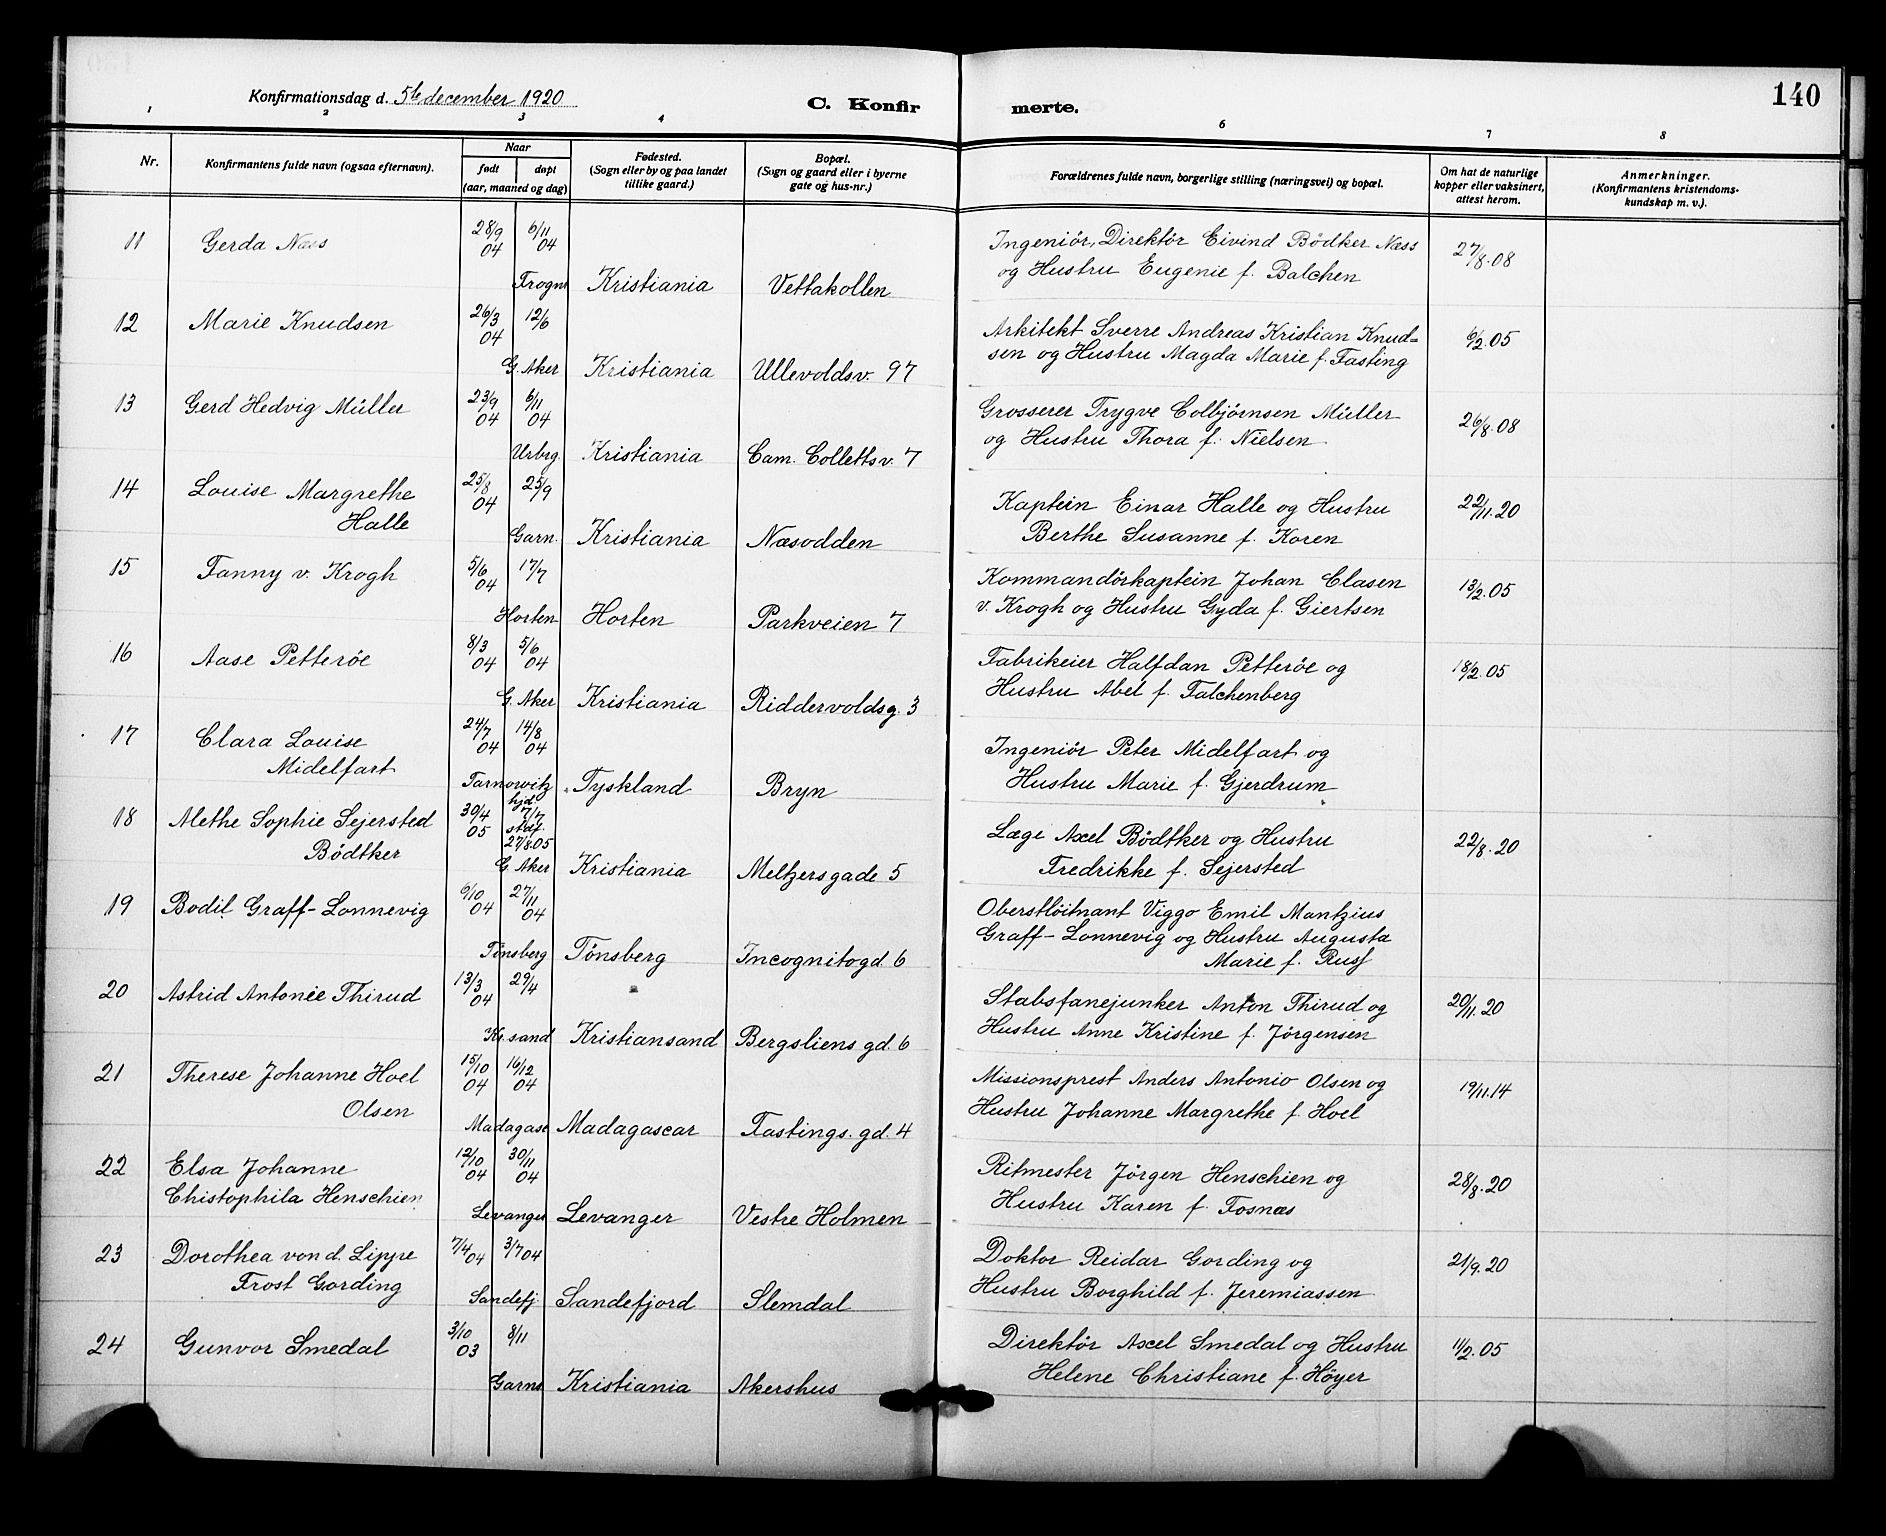 Konfirmationsdag d. 5te december 1920 C. Konfir merte. 140
1 2 3 4 6 7 8
Nr. Konfirmantens fulde navn (ogsaa efternavn). Naar født døpt (aar, maaned og dag) Fødested. (Sogn eller by og paa landet tillike gaard.) Bopæl. (Sogn og gaard eller i byerne gate og hus-nr.) Forældrenes fulde navn, borgerlige stilling (næringsvei) og bopæl. Om hat de naturlige kopper eller vaksinert, attest herom. Anmerkninger. (Konfirmantens kristendoms-kundskap m. v.).
11 Gerda Næss 28/9 04 6/11 04 Ingeniör, Direktör Eivind Bödker Næss 27/8.08
Frogn. Kristiania Vettakollen og Hustru Eugenie f. Balchen
12 Marie Knudsen 26/3 04 12/6 Arkitekt Sverre Andreas Kristian Knud= 6/2.05
G. Aker Kristiania Ullevoldsv. 97 sen og Hustru Magda Marie f. Fasting
13 Gerd Hedvig Müller 23/9 04 6/11 04 Grosserer Trygve Colbjörnsen Müller 26/8.08
Urbrg. Kristiania Cam. Collettsv. 7 og Hustru Thora f. Nielsen
14 Louise Margrethe 25/8 04 25/9 Kaptein Einar Halle og Hustru 22/11.20
Halle Garn. Kristiania Næsodden Berthe Susanne f. Koren
15 Fanny v. Krogh 5/6 04 17/7 Kommandörkaptein Johan Clasen 13/2.05
Horten Horten Parkveien 7 v. Krogh og Hustru Gyda f. Giertsen
16 Aase Petteröe 8/3 04 5/6 04 Fabrikeier Halfdan Petteröe og 18/2.05
G. Aker Kristiania Riddervoldsg. 3 Hustru Abel f. Falchenberg
17 Clara Louise 24/7 04 14/8 04 Ingeniör Peter Midelfart og
Midelfart Tarnowitz Tyskland Bryn Hustru Marie f. Gjerdrum
18 Methe Sophie Sejersted 30/4 05 hjd. 7/7 stdf. 27/8.05 Læge Axel Bödtker og Hustru 22/8.20
Bödtker G. Aker Kristiania Meltzersgade 5 Fredrikke f. Sejersted
19 Bodil Graff-Lonnevig 9/10 04 27/11 04 Oberstlöitnant Viggo Emil Mantzius
Tönsberg Tönsberg Incognitogd. 6 Graff-Lonnevig og Hustru Augusta
Marie f. Rusf
20 Astrid Antonie Thirud 13/3 04 29/4 Stabsfanejunker Anton Thirud og 20/11.20
Kr.sand Kristiansand Bergsliens gd. 6 Hustru Anne Kristine f. Jörgensen
21 Therese Johanne Hoel 15/10 04 16/12 04 Missionsprest Anders Antonio Olsen og 19/11.14
Olsen Madagasc Madagascar Fastings. gd. 4 Hustru Johanne Margrethe f. Hoel
22 Elsa Johanne 12/10 04 30/11 04 Ritmester Jörgen Henschien og 28/8.20
Chistophila Henschien Levanger Levanger Vestre Holmen Hustru Karen f. Fosnæs
23 Dorothea von d. Lippe 7/4 04 3/7 04 Doktor Reidar Gording og 21/9.20
Frost Gording Sandefj. Sandefjord Slemdal Hustru Borghild f. Jeremiassen
24 Gunvor Smedal 3/10 03 8/11 Direktör Axel Smedal og Hustru 11/2.05
Garns. Kristiania Akershus Helene Christiane f. Höyer